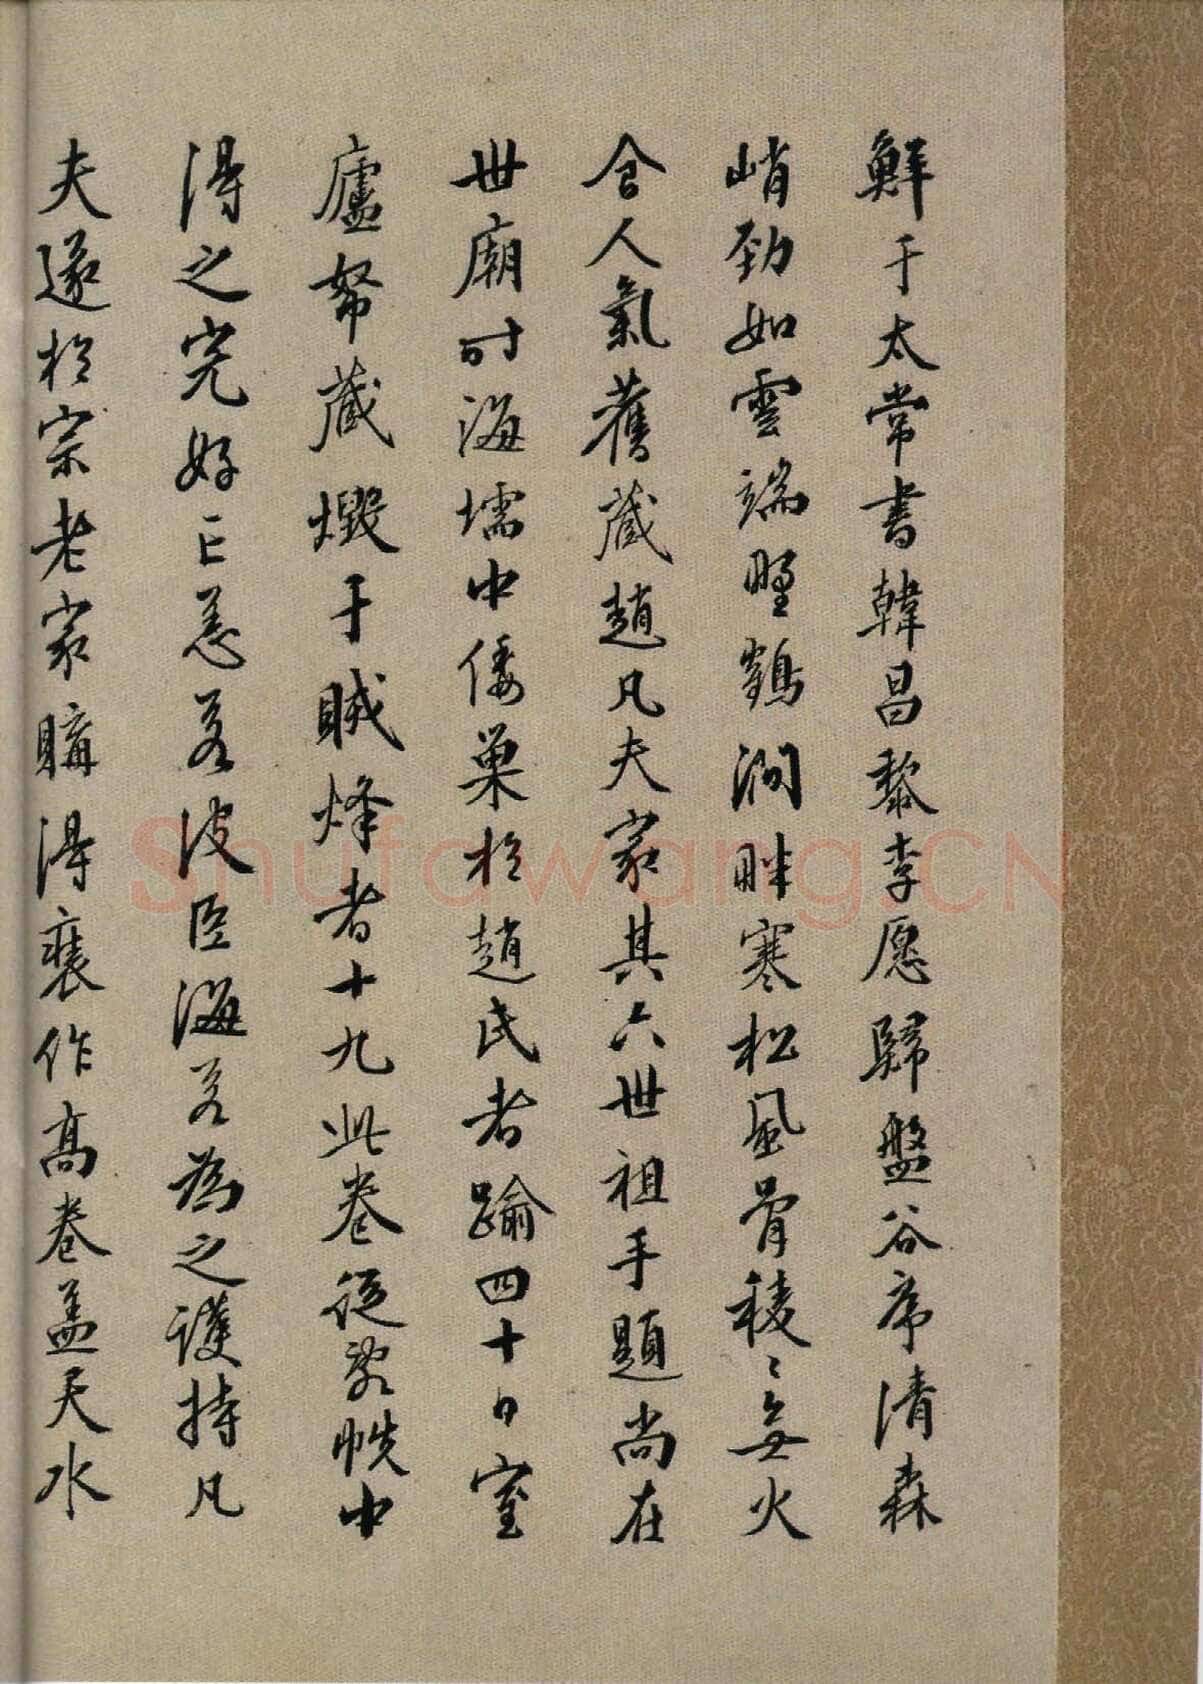 鮮于太常書韓昌黎李愿歸盤谷序清森
峭勁如雲端野鶴澗畔寒松風骨稜〻無火
食人氣舊藏趙凡夫家其六世祖手題尚在
世廟時海壖中倭巢於趙氏者踰四十日室
廬帑藏燬于賊烽者十九此卷從敗帙中
得之完好亡恙若波臣海若為之護持凡
夫遂於宗老家購得裝作高卷蓋天水
Shufawang.CN